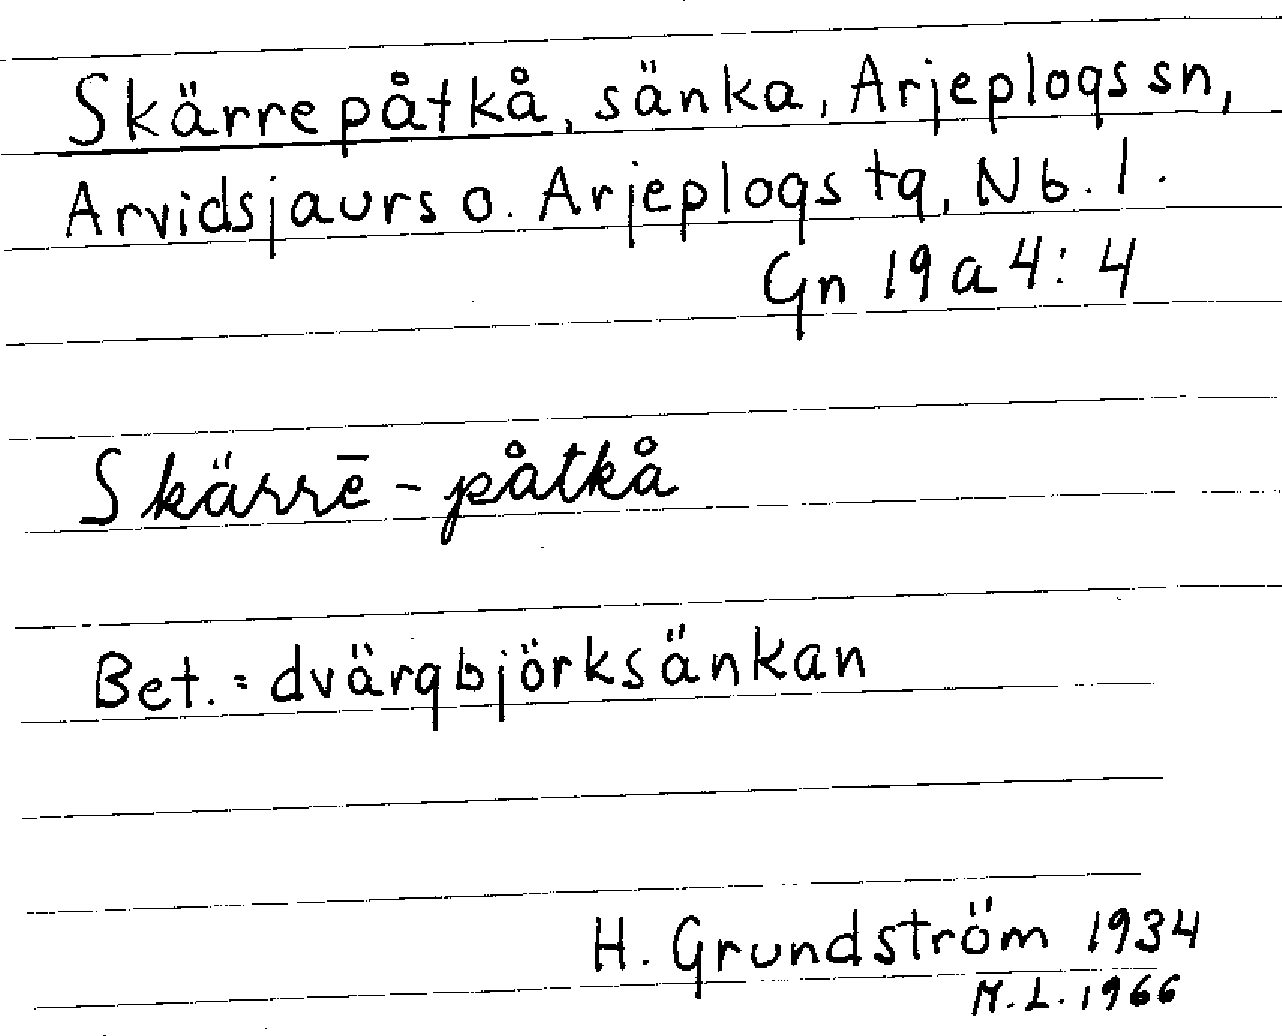 Skärrepåtkå, sänka, Arjeplogs sn,
Arvidsjaurs o. Arjeplogs tg, Nb. l.
Gn 19 a 4: 4
Skärrē-påtkå
Bet. = dvärgbjörksänkan
H. Grundström 1934
M.L. 1966